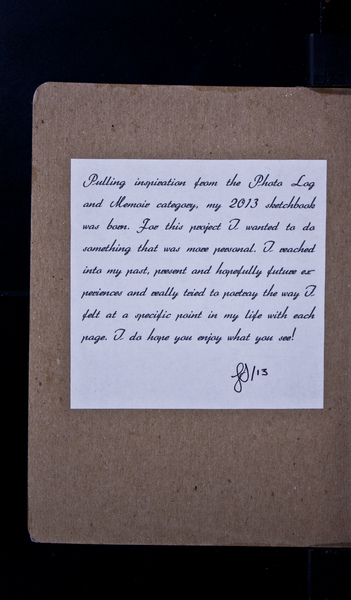 Pulling inspiration from the Photo Log
and Memoir category, my 2013 sketchbook
was born. For this project I wanted to do
something that was more personal. I reached
into my past, present and hopefully future ex-
periences and really tried to portray the way I
felt at a specific point in my life with each
page. I do hope you enjoy what you see!
/13